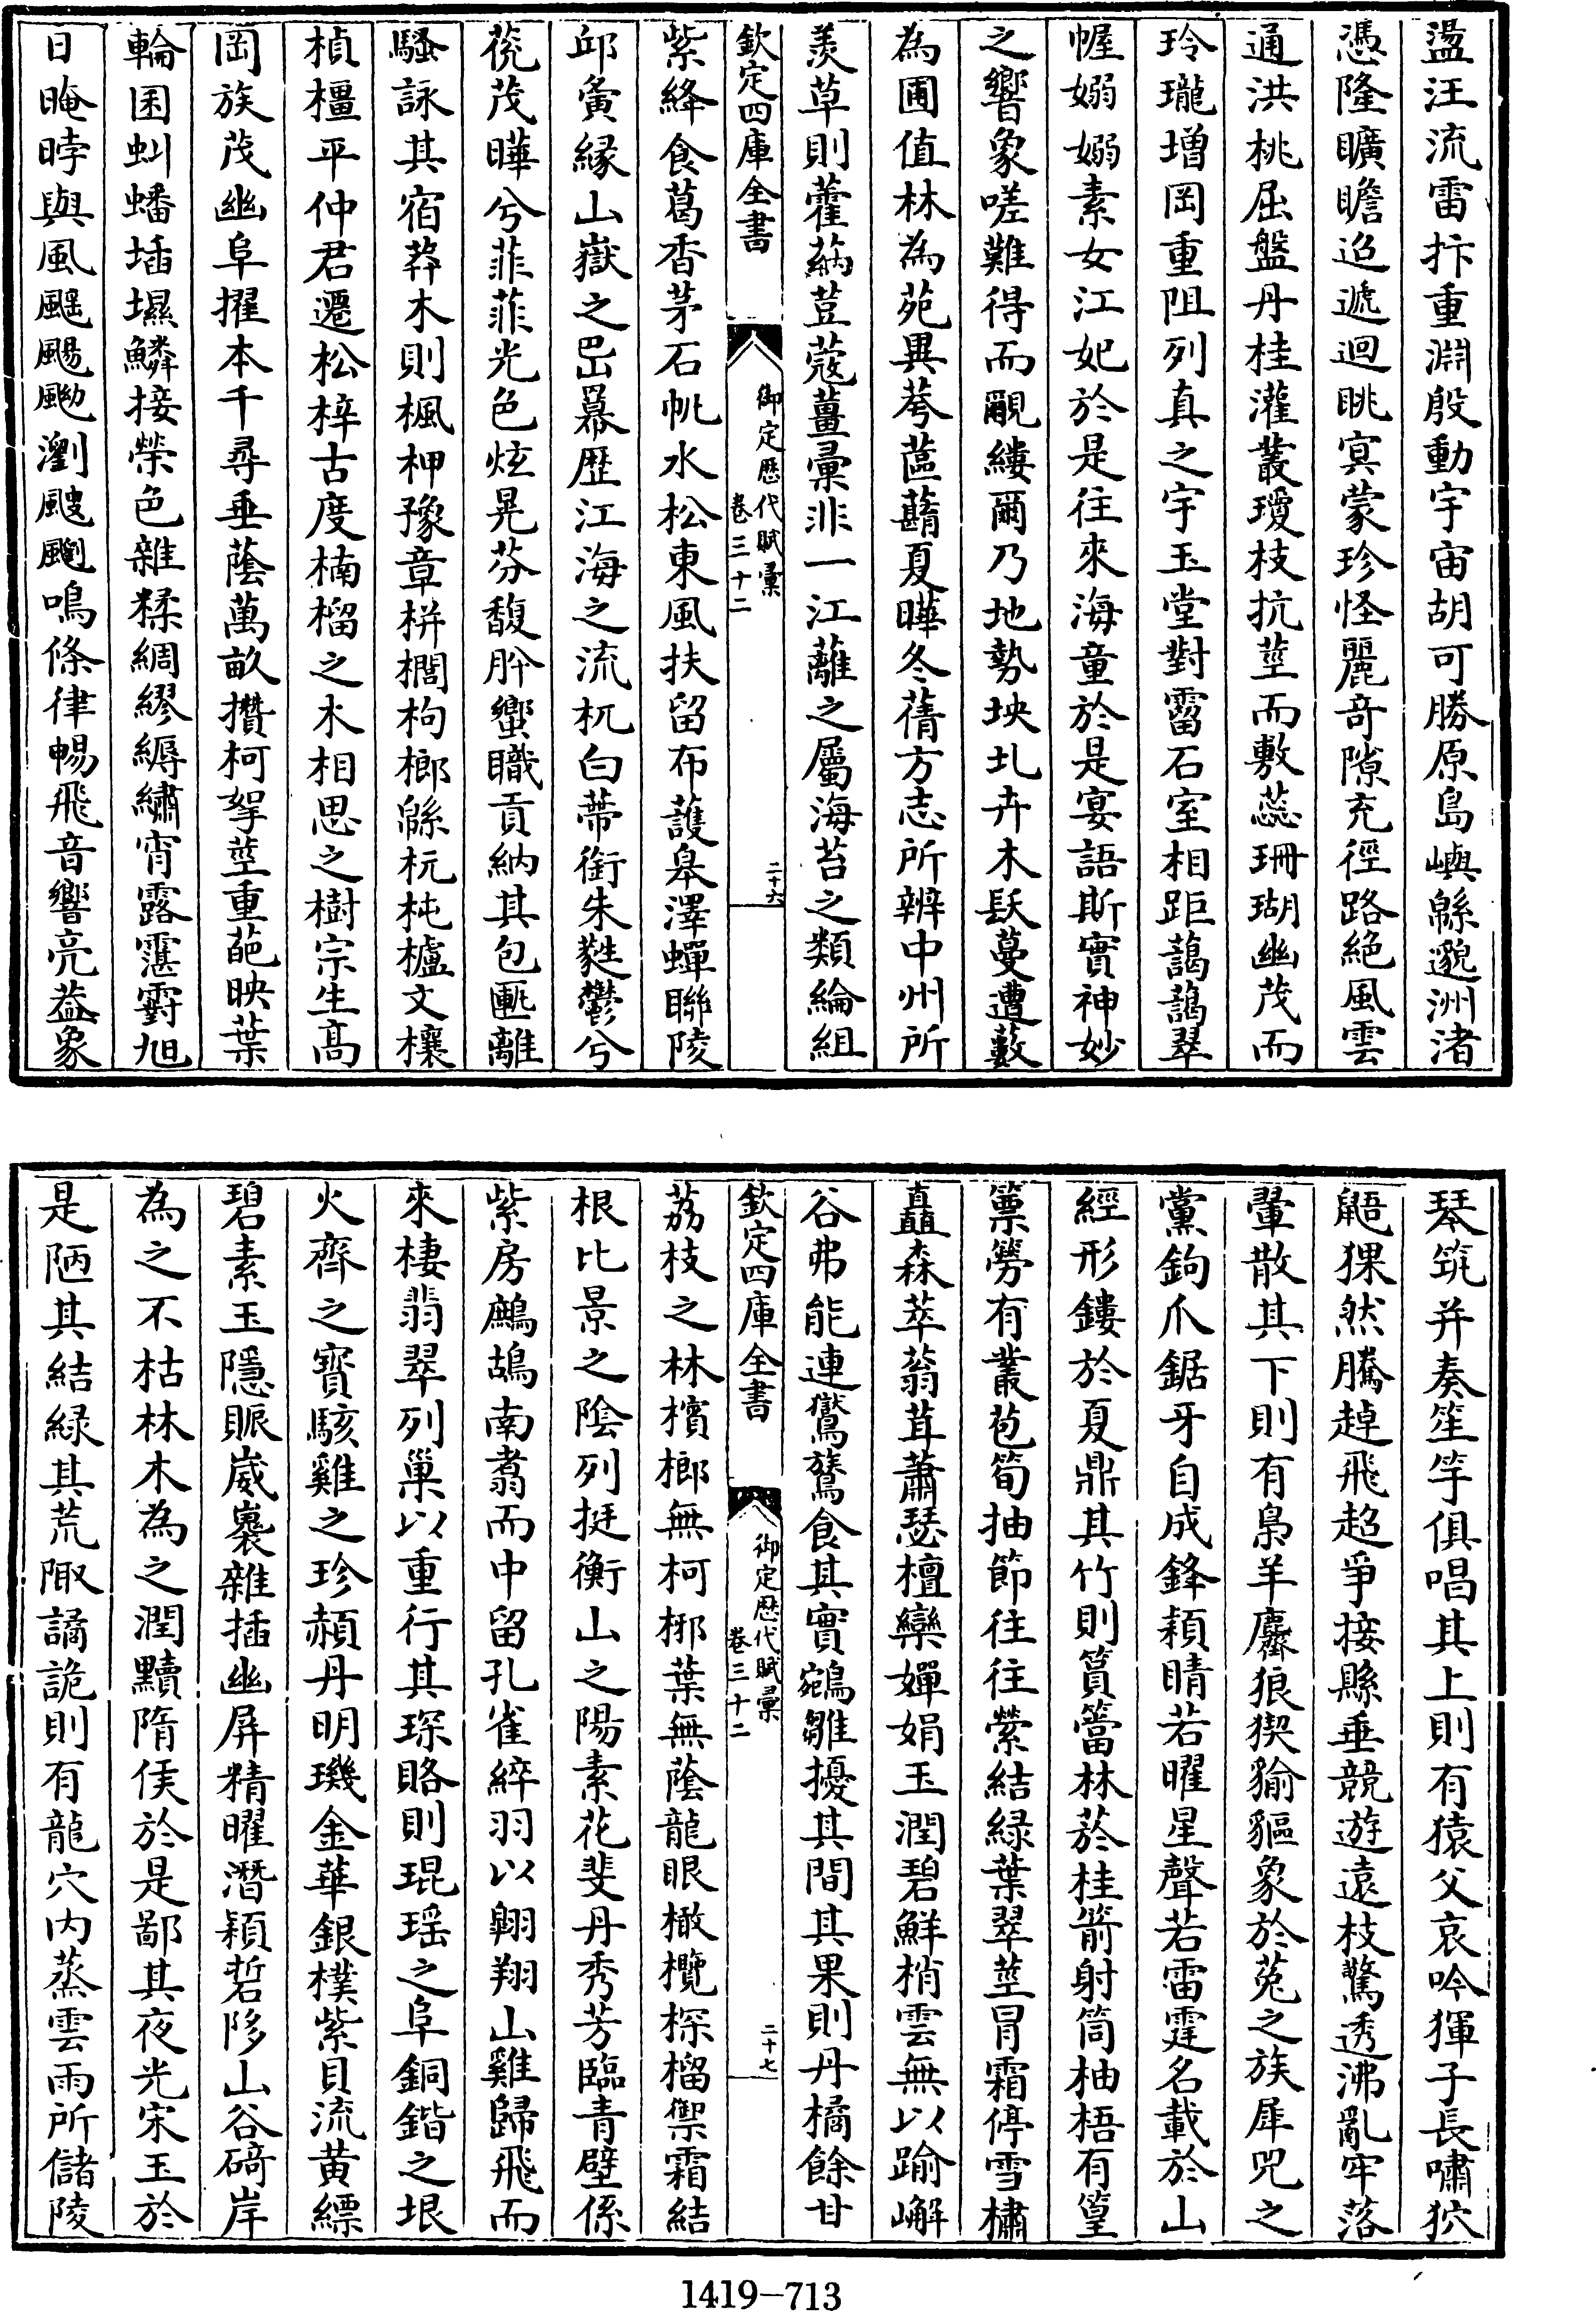 盪汪流雷抃重淵殷動宇宙胡可勝原島嶼緜邈洲渚
憑隆曠瞻迢遞迴眺冥蒙珍怪麗奇隙充徑路絶風雲
通洪桃屈盤丹桂灌叢瓊枝抗莖而敷蕊珊瑚幽茂而
玲瓏增岡重阻列真之宇玉堂對霤石室相距藹藹翠
幄嫋嫋素女江妃於是往來海童於是宴語斯實神妙
之響象嗟難得而覼縷爾乃地勢坱圠卉木镺蔓遭藪
為圃值林為苑異荂蓲蘛夏曄冬蒨方志所辨中州所
羨草則藿蒳荳蔻薑彚非一江蘺之屬海苔之類綸組
欽定四庫全書
御定歴代賦彙
卷三十二
二十六
紫絳食葛香茅石帆水松東風扶留布䕶臯澤蟬聯陵
邱夤縁山嶽之岊冪歴江海之流杌白蔕銜朱蕤鬱兮
茷茂曄兮菲菲光色炫晃芬馥肸蠁職貢納其包匭離
騷詠其宿莽木則楓柙豫章栟櫚枸榔緜杬杶櫨文欀
楨橿平仲君遷松梓古度楠榴之木相思之樹宗生高
岡族茂幽阜擢本千尋垂蔭萬畝攢柯挐莖重葩映葉
輪囷虯蟠㙮㙷鱗接榮色雜糅綢繆縟繡宵露霮䨴旭
日晻時與風䬙颺䬀瀏颼飀鳴條律暢飛音響亮葢象
琴筑并奏笙竽俱唱其上則有猿父哀吟㹆子長嘯狖
鼯猓然騰趠飛超爭接縣垂競遊遠枝驚透沸亂牢落
翬散其下則有梟羊麡狼猰貐貙象於菟之族犀兕之
黨鉤爪鋸牙自成鋒穎睛若曜星聲若雷霆名載於山
經形鏤於夏鼎其竹則篔簹林菸桂箭射筒柚梧有篁
篻簩有叢苞筍抽節往往縈結緑葉翠莖冒霜停雪橚
矗森萃蓊茸蕭瑟檀欒嬋娟玉潤碧鮮梢雲無以踰嶰
谷弗能連鸑鷟食其實鵷雛擾其間其果則丹橘餘甘
欽定四庫全書
御定歴代賦彙
卷三十二
二十七
荔枝之林檳榔無柯椰葉無蔭龍眼橄欖棎榴禦霜結
根比景之陰列挺衡山之陽素花斐丹秀芳臨青壁係
紫房鷓鴣南翥而中留孔雀綷羽以翱翔山雞歸飛而
來棲翡翠列巢以重行其琛賂則琨瑶之阜銅鍇之垠
火齊之寳駭雞之珍赬丹明璣金華銀樸紫貝流黄縹
碧素玉隱賑崴裹雜插幽屏精曜潛穎硩陊山谷碕岸
為之不枯林木為之潤黷隋侯於是鄙其夜光宋玉於
是陋其結緑其荒陬譎詭則有龍穴内蒸雲雨所儲陵
1419—713